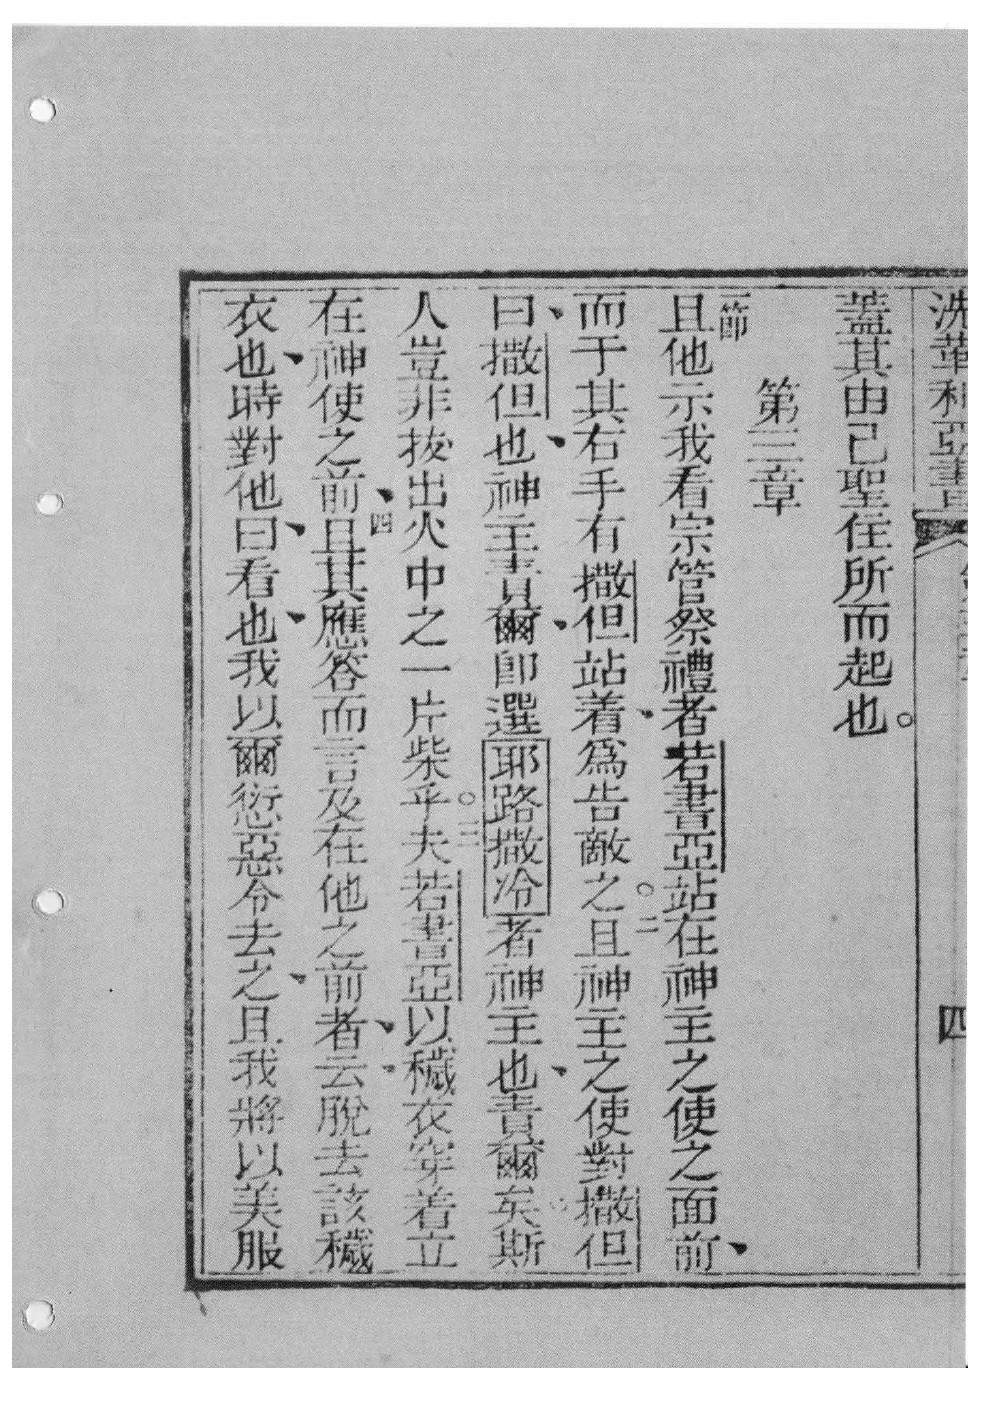 蓋其由己聖住所而起也。
第三章
一節且他示我看宗管祭禮者若書亞站在神主之使之面前、
而于其右手有撒但站着、為告敵之。二且神主之使對撒但
曰、撒但也、神主責爾、卽選耶路撒冷者神主也、責爾矣、斯
人豈非拔出火中之一片柴乎。三夫若書亞以穢衣穿着立
在神使之前、四且其應答而言及在他之前者、云、脫去該穢
衣也、時對他曰、看也、我以爾愆惡令去之、且我將以美服
洗革利亞書
四